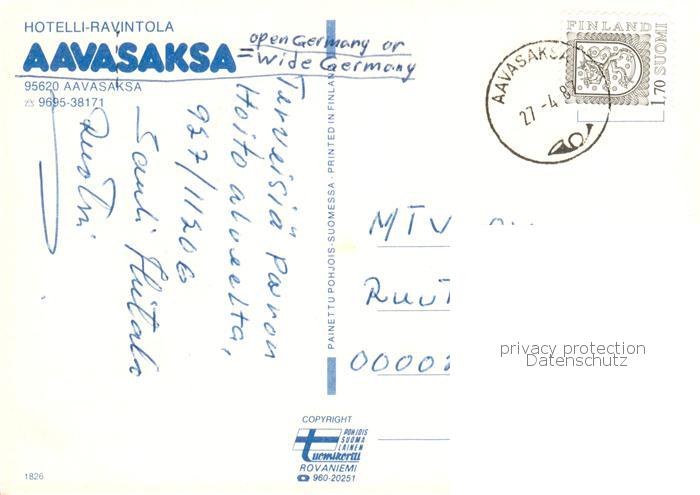 HOTELLI-RAVINTOLA
AAVASAKSA
= open Germany or
wide Germany
95620 AAVASAKSA
☎ 9695-38171
Terveisiä Poron
Hoito alueelta,
927/11206
Sauli Huitala
Ruotsi
PAINETTU POHJOIS-SUOMESSA - PRINTED IN FINLAND
FINLAND
SUOMI
1,70
AAVASAKSA
27 -4 8
MTV
RUUT
0000
privacy protection
Datenschutz
COPYRIGHT
POHJOIS
SUOMA
LAINEN
tuomikortti
ROVANIEMI
☎ 960-20251
1826